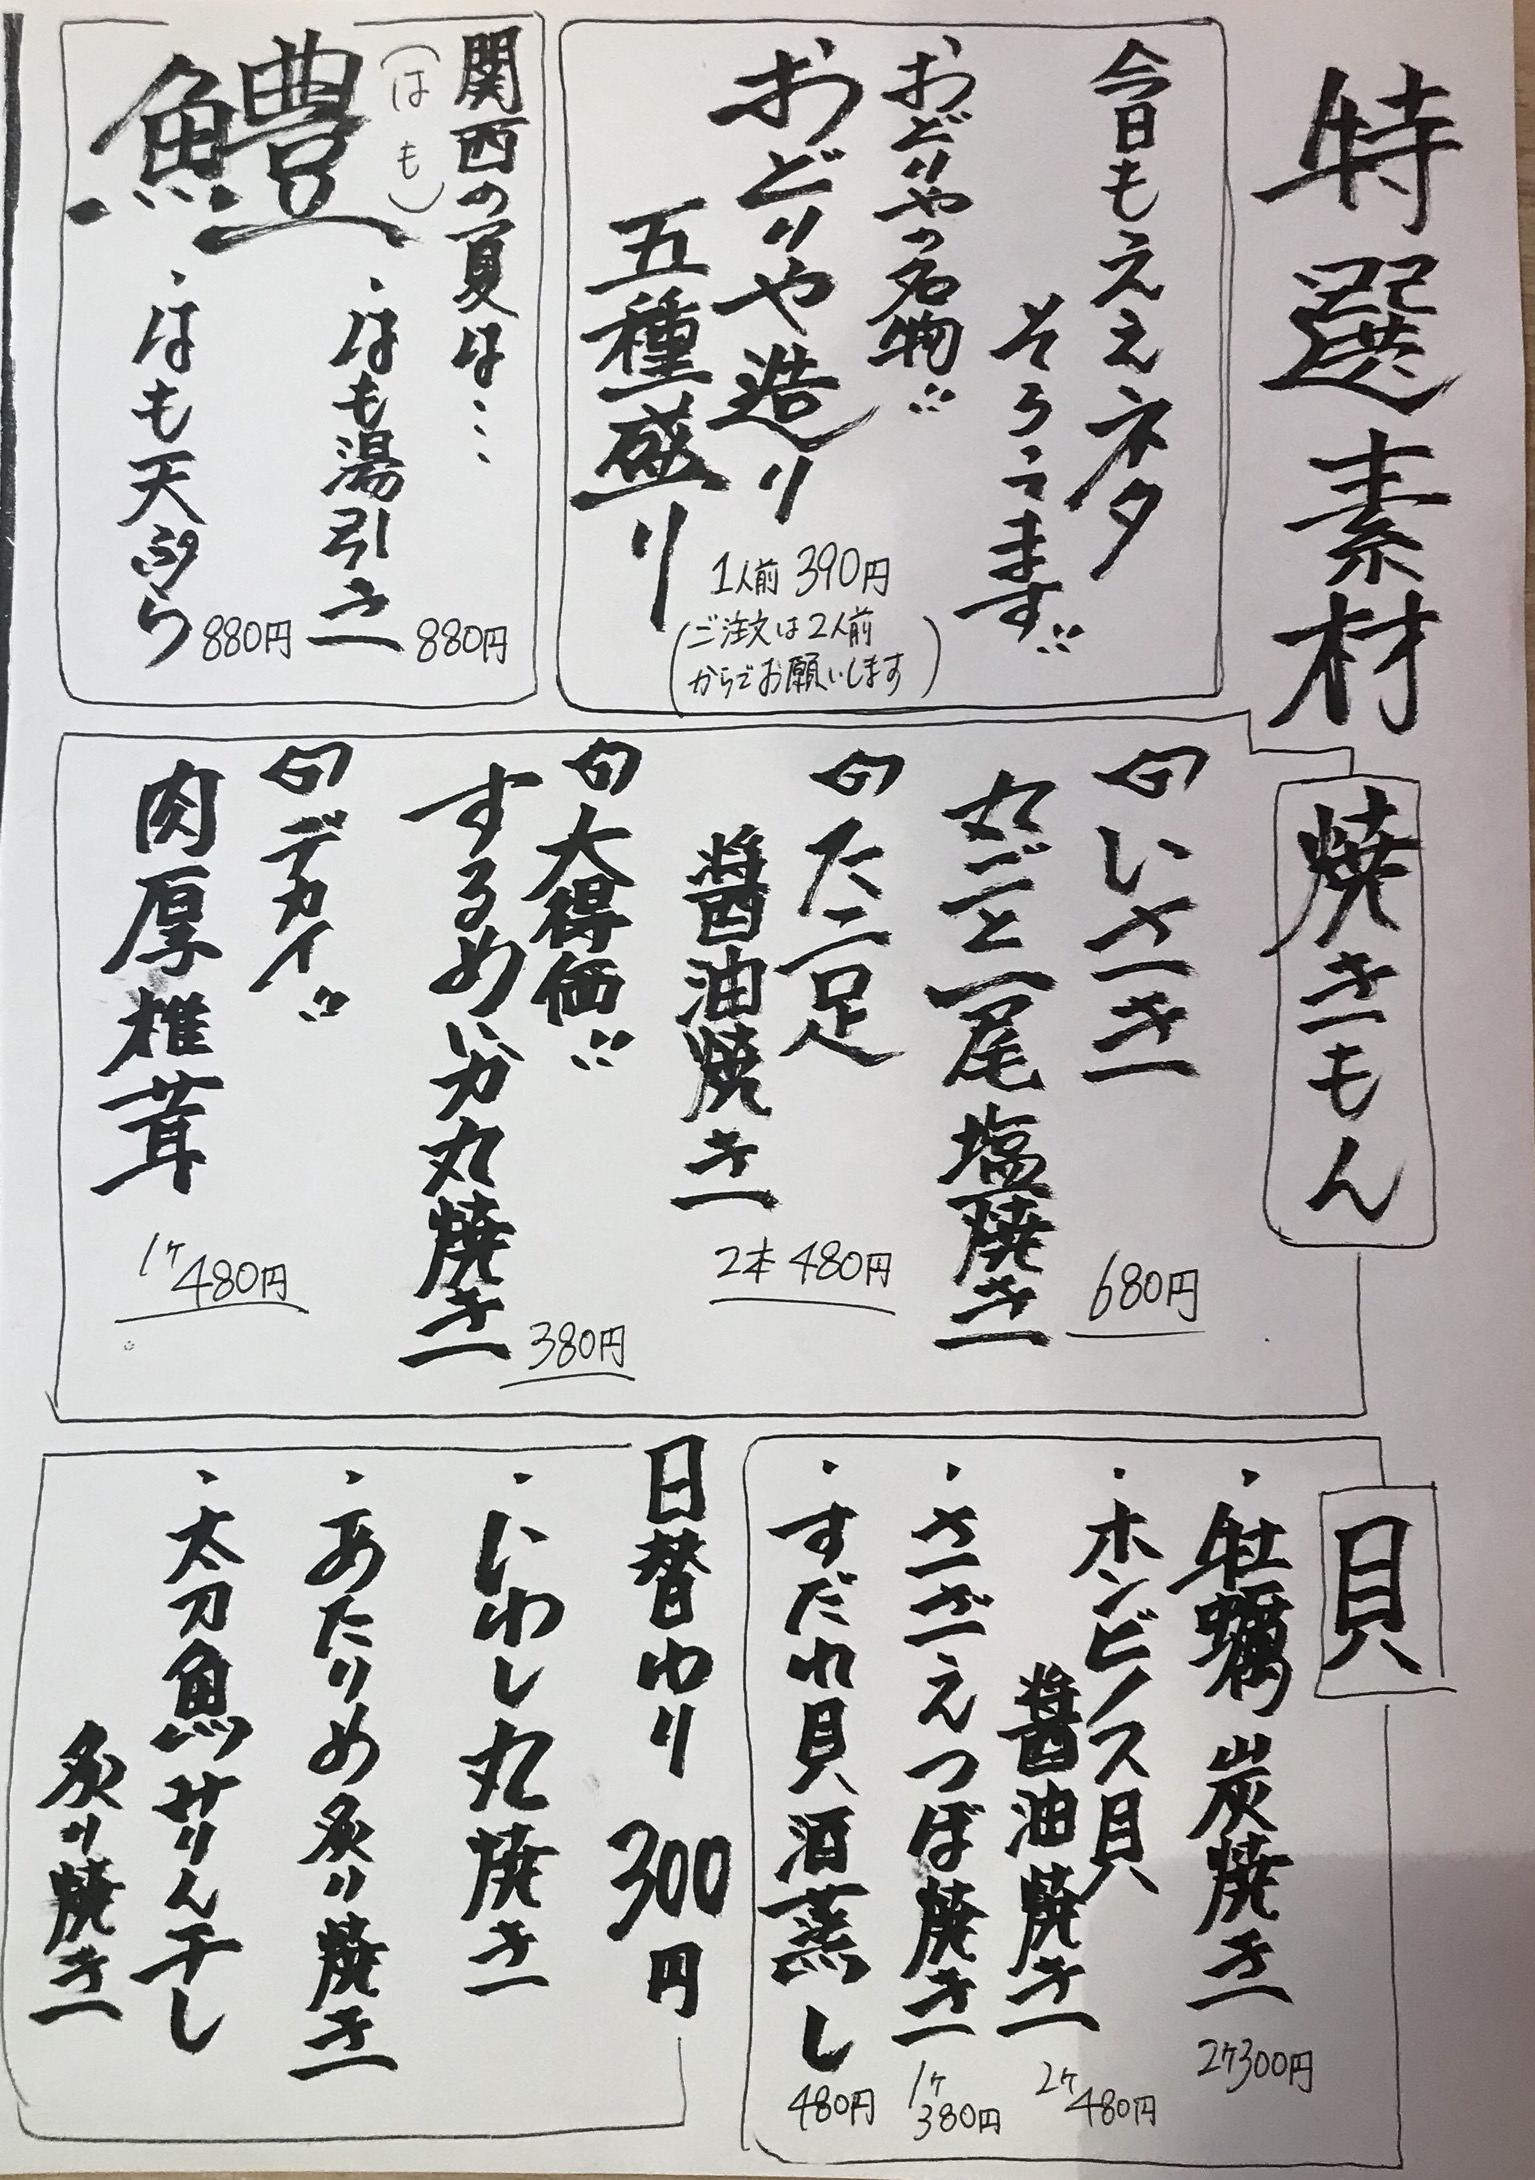 特選素材
今日もええネタ
そろてます!!
おどりやの名物!!
おどりや造り
五種盛り
1人前 390円
(ご注文は2人前
からでお願いします)
関西の夏は…
鱧
(はも)
・はも湯引き
880円
・はも天ぷら
880円
焼きもん
いさき
丸ごと一尾塩焼き
680円
たこ足
醤油焼き
2本 480円
大得価!!
するめいか丸焼き
380円
デカイ!!
肉厚椎茸
1ケ 480円
貝
・牡蠣 炭焼き
2ケ300円
・ホンビノス貝
醤油焼き
2ケ 480円
・さざえつぼ焼き
1ケ 380円
・すだれ貝酒蒸し
480円
日替わり 300円
・いわし丸焼き
・あたりめ炙り焼き
・太刀魚サりん干し
炙り焼き